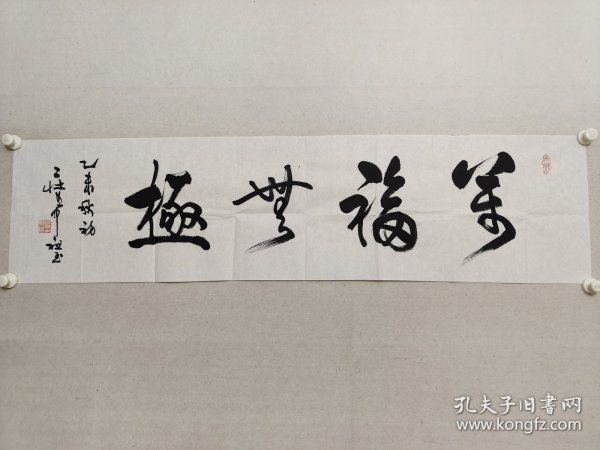 萬福無極
乙未秋初
孔夫子旧书网
www.kongfz.com